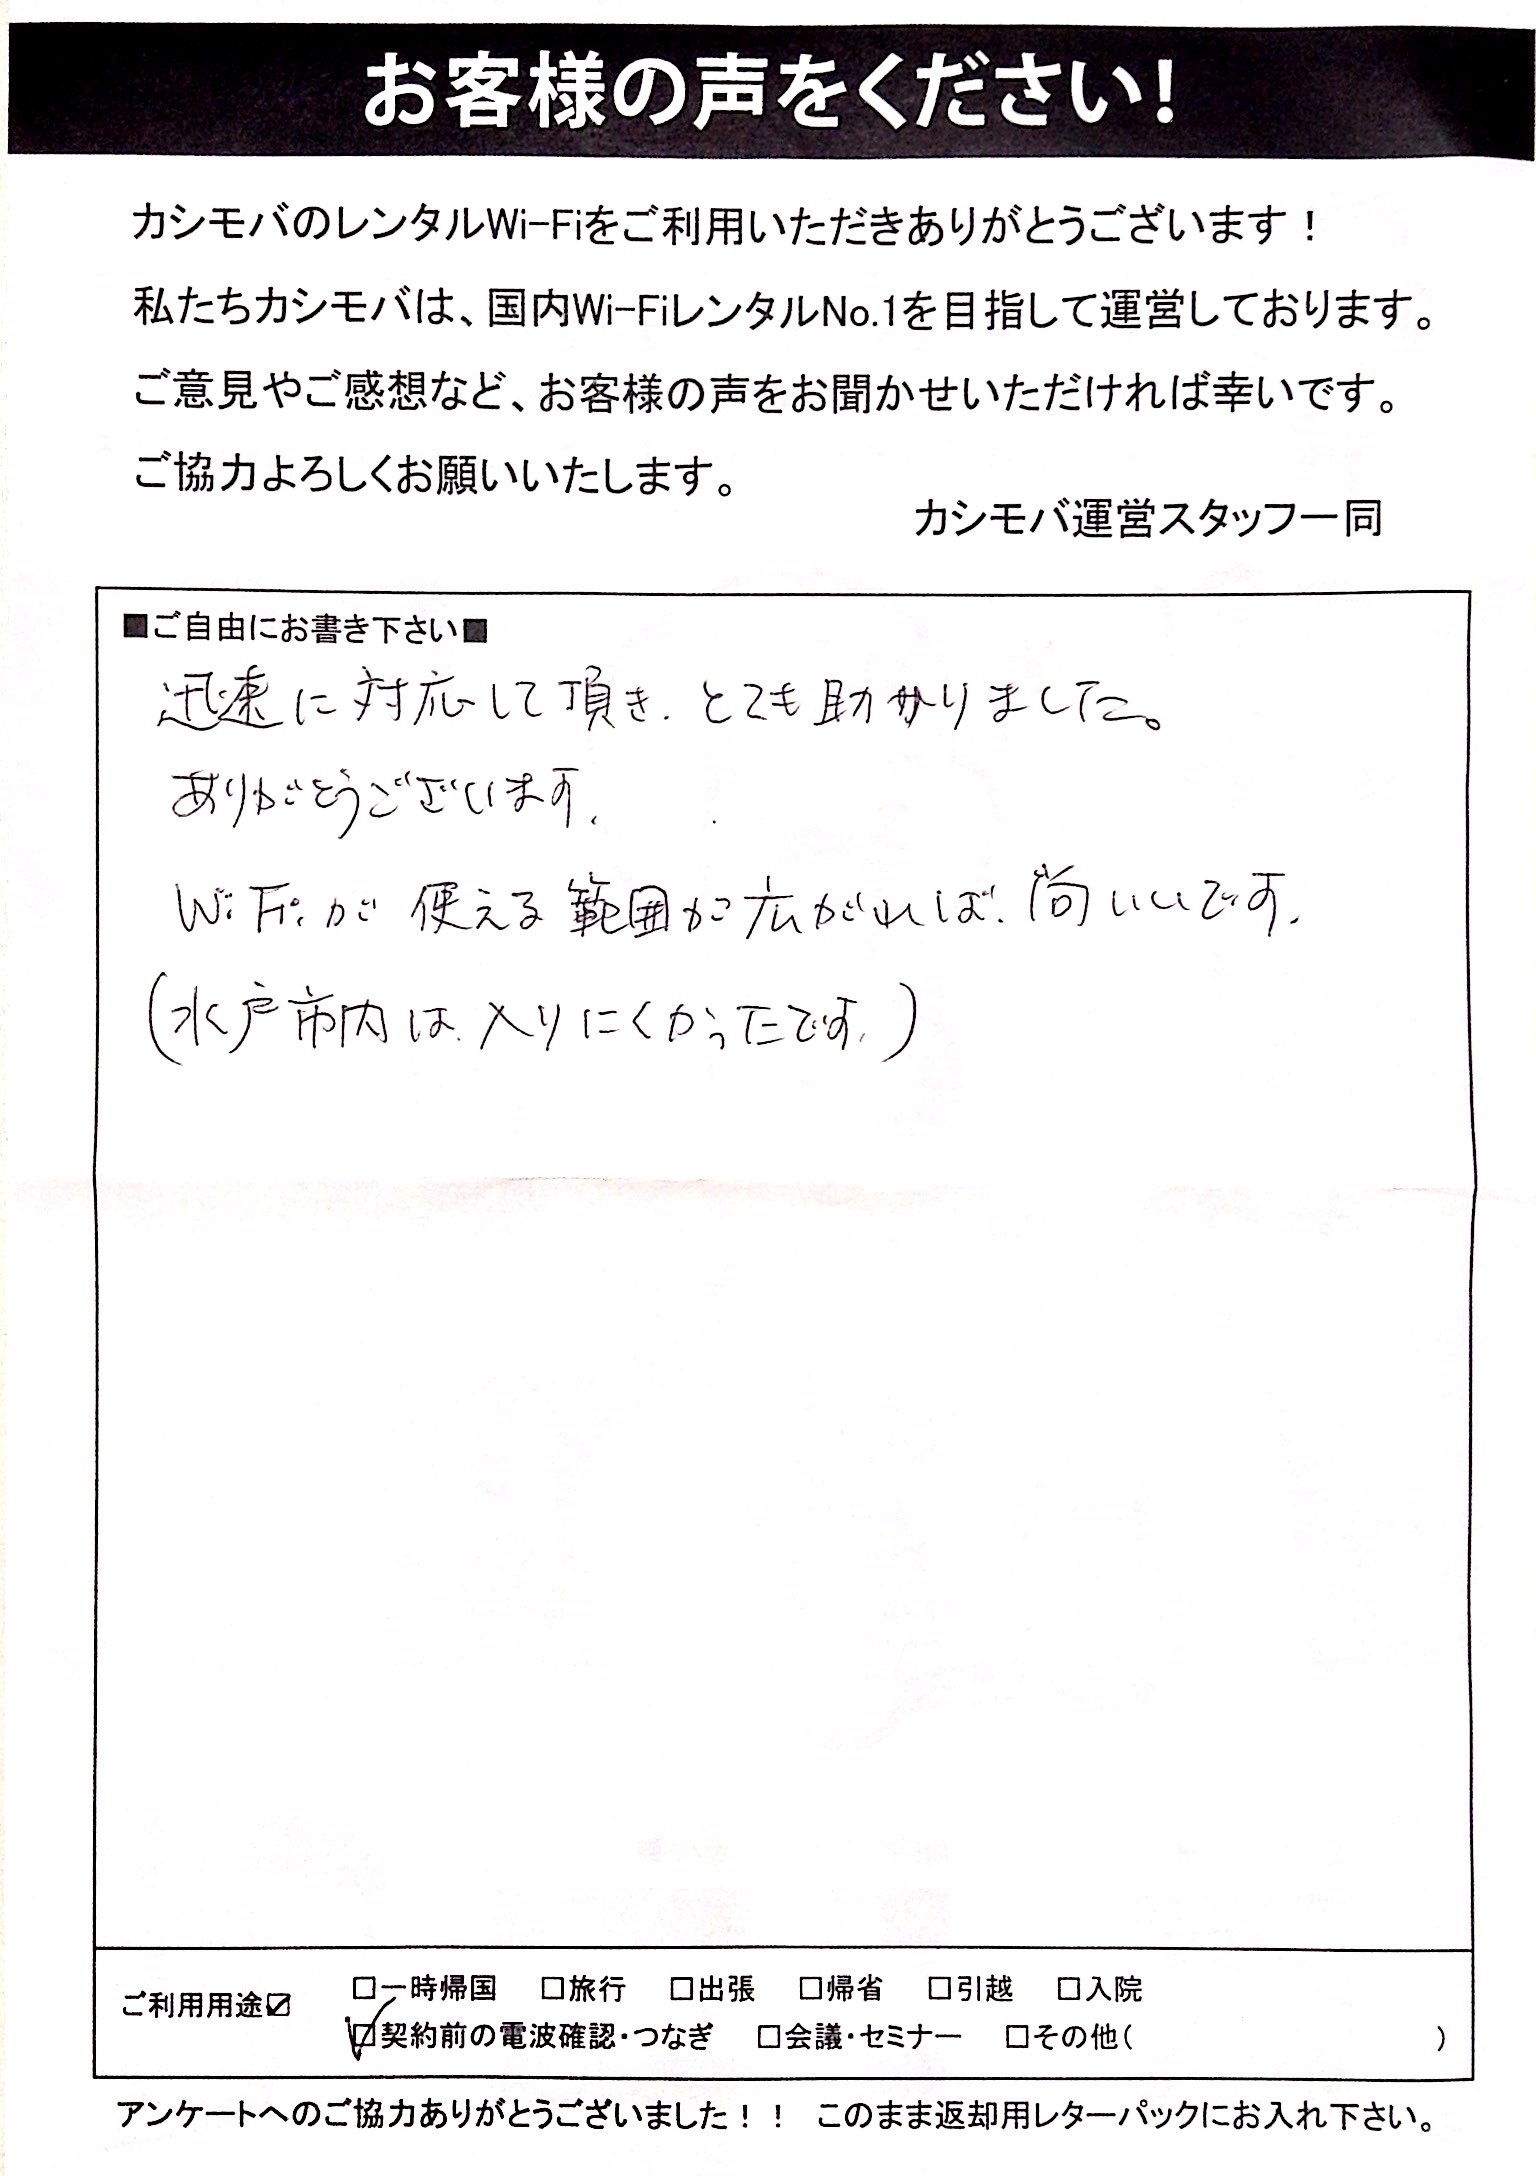 お客様の声をください!
カシモバのレンタルWi-Fiをご利用いただきありがとうございます！
私たちカシモバは、国内Wi-FiレンタルNo.1を目指して運営しております。
ご意見やご感想など、お客様の声をお聞かせいただければ幸いです。
ご協力よろしくお願いいたします。
カシモバ運営スタッフ一同
■ご自由にお書き下さい■
迅速に対応して頂き、とても助かりました。
ありがとうございます。
WiFiが使える範囲が広がれば、尚いいです。
(水戸市内は、入りにくかったです。)
ご利用用途☑
□一時帰国 □旅行 □出張 □帰省 □引越 □入院
☑契約前の電波確認・つなぎ □会議・セミナー □その他( )
アンケートへのご協力ありがとうございました！！ このまま返却用レターパックにお入れ下さい。